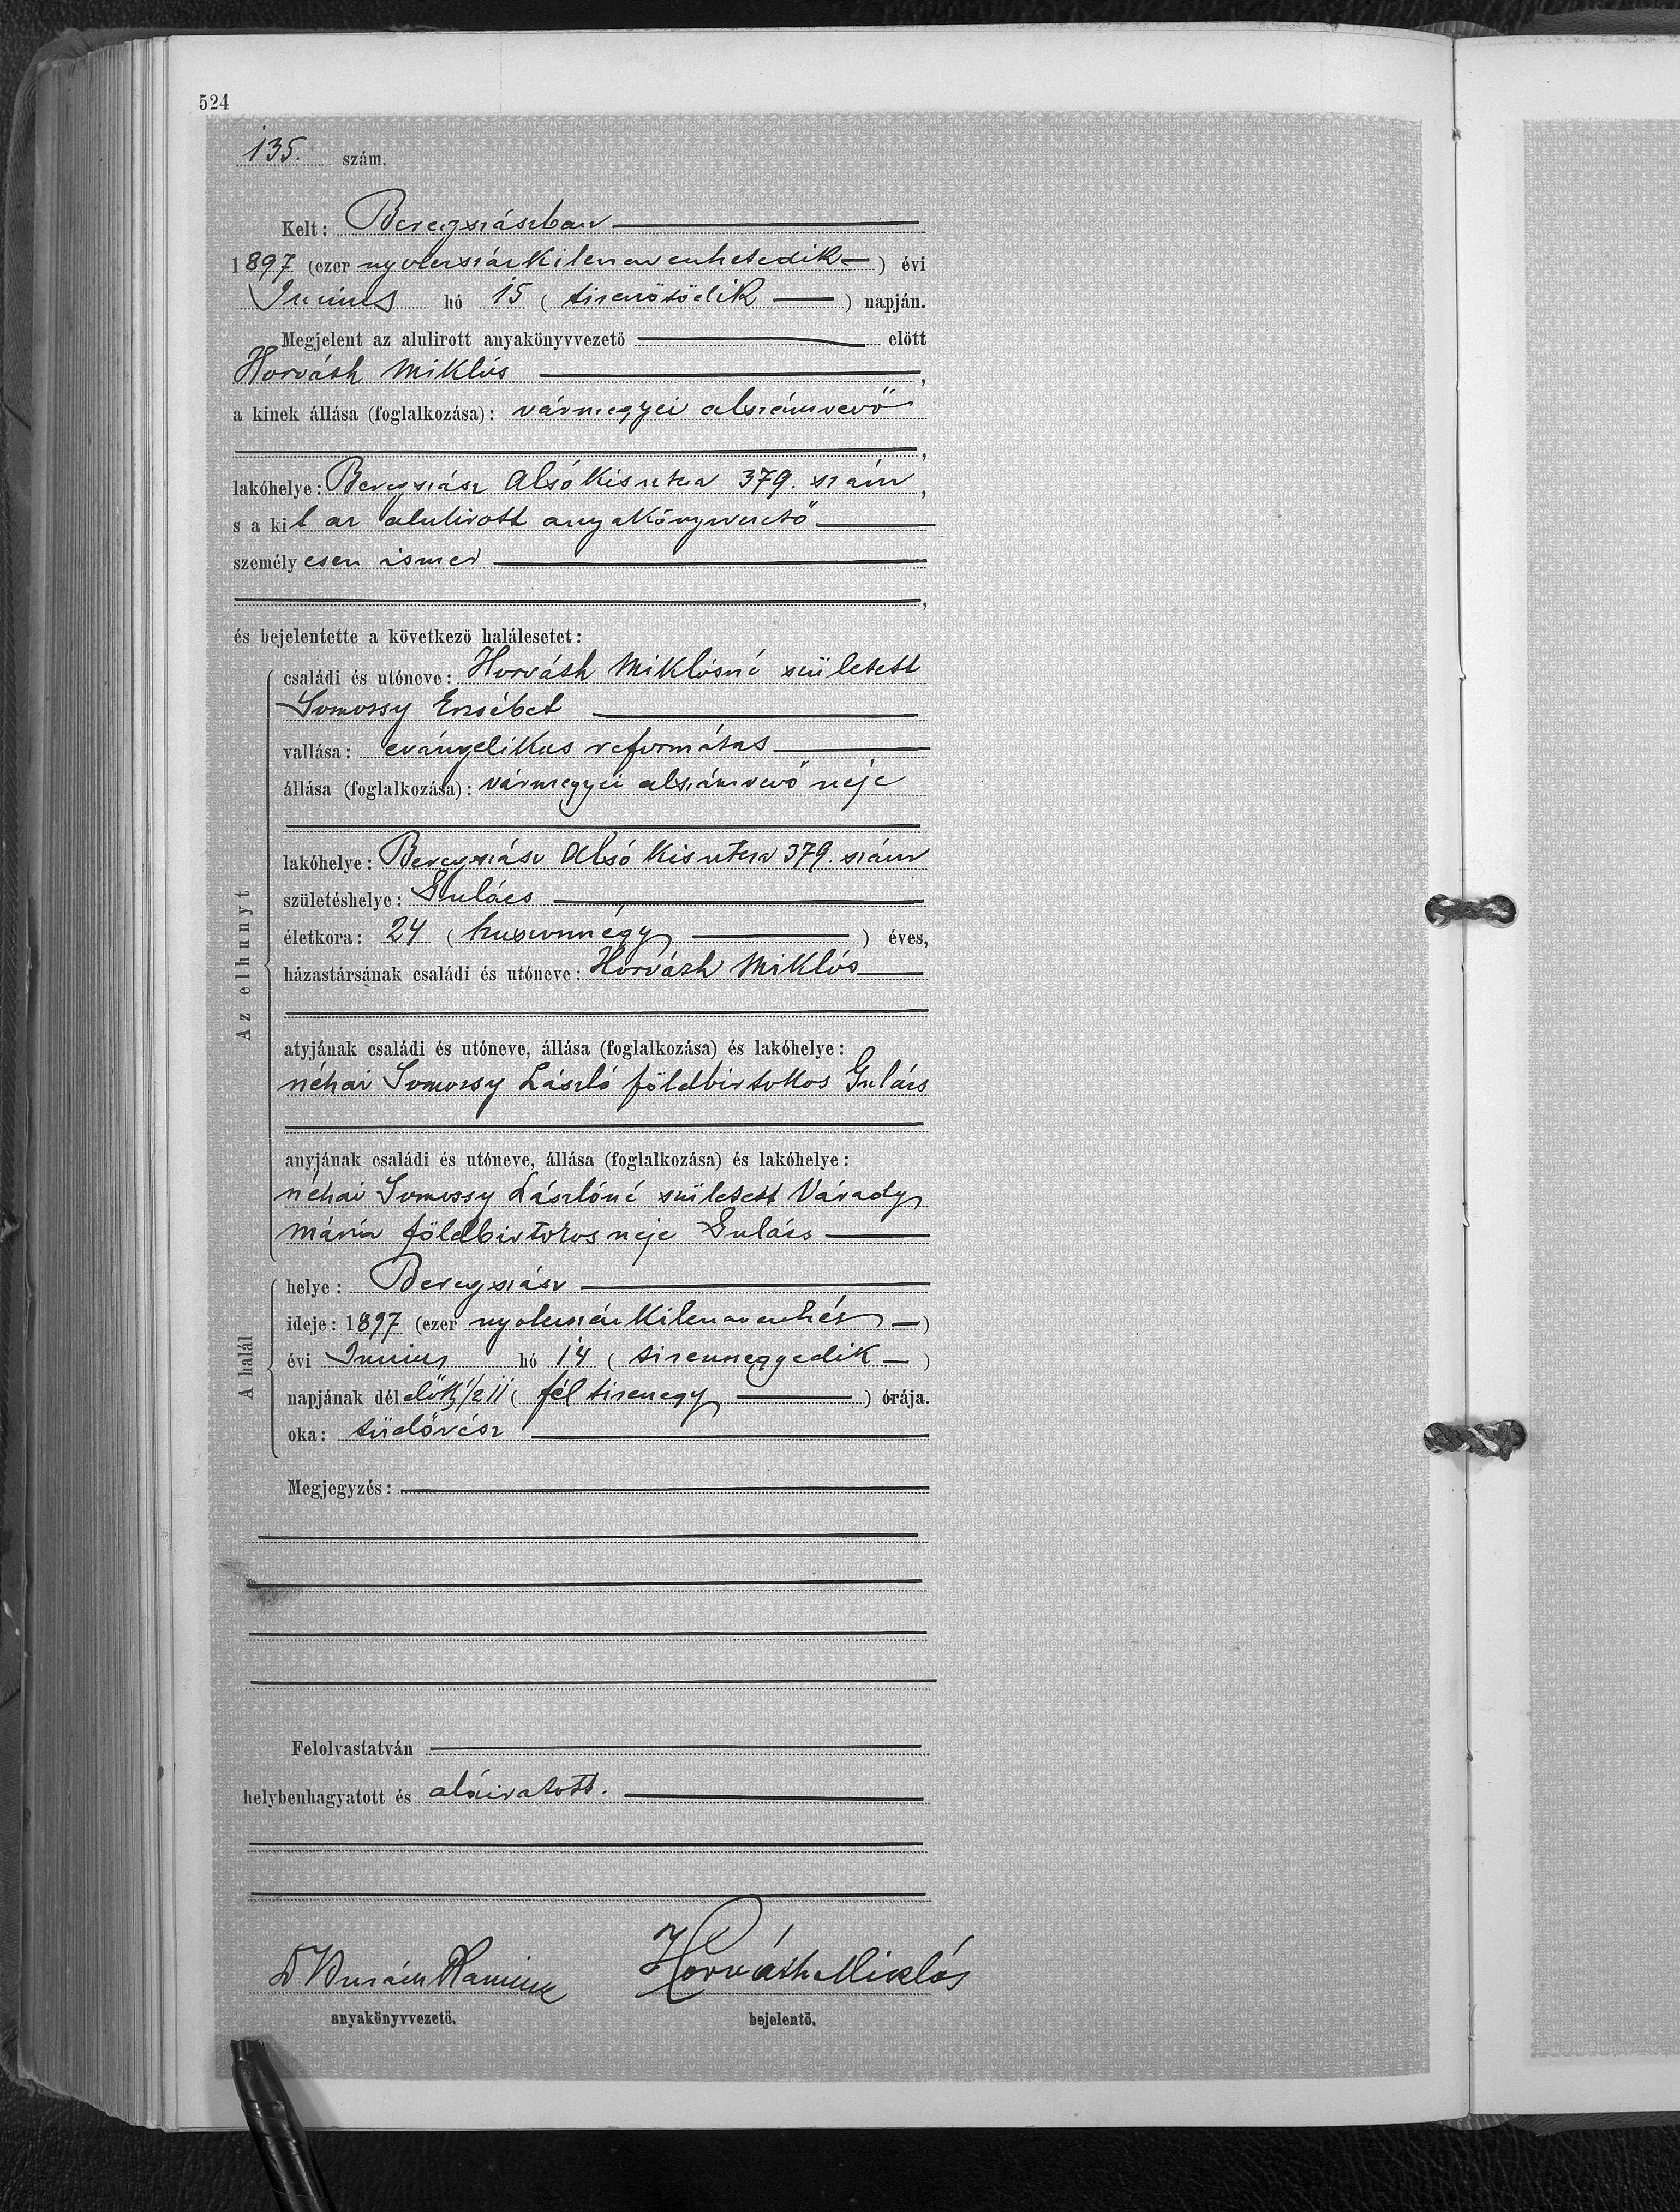 524
135. szám.
Kelt: Beregszászban
1897 (ezer nyolczszázkilenczvenhetedik) évi
Június hó 15 (tizenötödik) napján.
Megjelent az alulirott anyakönyvvezető előtt
Horváth Miklós,
a kinek állása (foglalkozása): vármegyei alszámvevő
,
lakóhelye: Beregszász Alsó Kisutcza 379. szám,
s a kit az alulirott anyakönyvvezető
személyesen ismer
,
és bejelentette a következő halálesetet:
Az elhunyt
családi és utóneve: Horváth Miklósné született
Somossy Erzsébet
vallása: evángelikus református
állása (foglalkozása): vármegyei alszámvevő neje
lakóhelye: Beregszász Alsó Kisutcza 379. szám
születéshelye: Gulács
életkora: 24 (huszonnégy) éves,
házastársának családi és utóneve: Horváth Miklós
atyjának családi és utóneve, állása (foglalkozása) és lakóhelye:
néhai Somossy László földbirtokos Gulács
anyjának családi és utóneve, állása (foglalkozása) és lakóhelye:
néhai Somossy Lászlóné született Várady
Mária földbirtokos neje Gulács
A halál
helye: Beregszász
ideje: 1897 (ezer nyolczszázkilenczvenhét)
évi Június hó 14 (tizennegyedik)
napjának délelőtti ½11 (fél tizenegy) órája.
oka: tüdővész
Megjegyzés:
Felolvastatván
helybenhagyatott és aláiratott.
Horváth Miklós
anyakönyvvezető.
bejelentő.